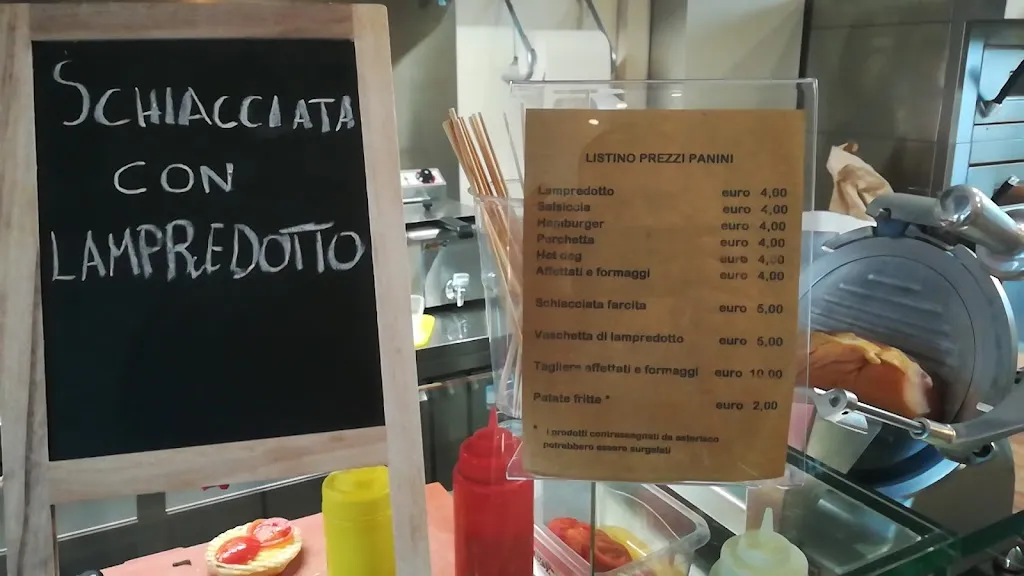 SCHIACCIATA
CON
LAMPREDOTTO
LISTINO PREZZI PANINI
Lampredotto euro 4,00
Salsiccia euro 4,00
Hamburger euro 4,00
Porchetta euro 4,00
Hot dog euro 4,00
Affettati e formaggi euro 4,00
Schiacciata farcita euro 5,00
Vaschetta di lampredotto euro 5,00
Tagliere affettati e formaggi euro 10,00
Patate fritte * euro 2,00
* i prodotti contrassegnati da asterisco
potrebbero essere surgelati